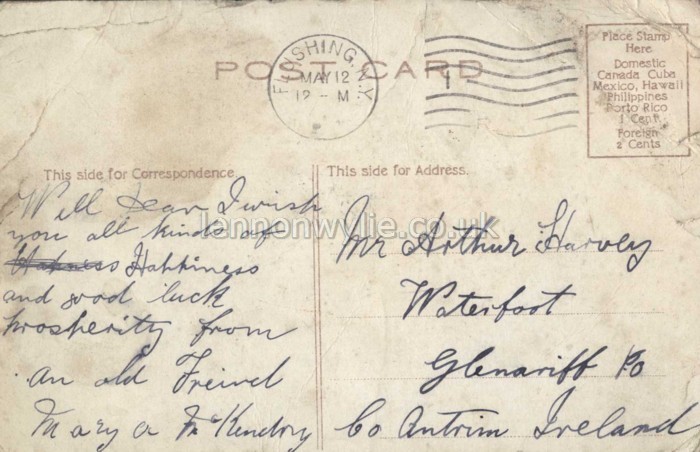 POST CARD
FLUSHING, N.Y.
MAY 12
12 - M
1
Place Stamp
Here
Domestic
Canada Cuba
Mexico, Hawaii
Philippines
Porto Rico
1 Cent
Foreign
2 Cents
This side for Correspondence.
Well Dear I wish
you all kinds of
Happiness
and good luck
prosperity from
an old Freind
Mary A McKendry
This side for Address.
Mr Arthur Harvey
Waterfoot
Glenariff Po
Co Antrim Ireland
lennonwylie.co.uk